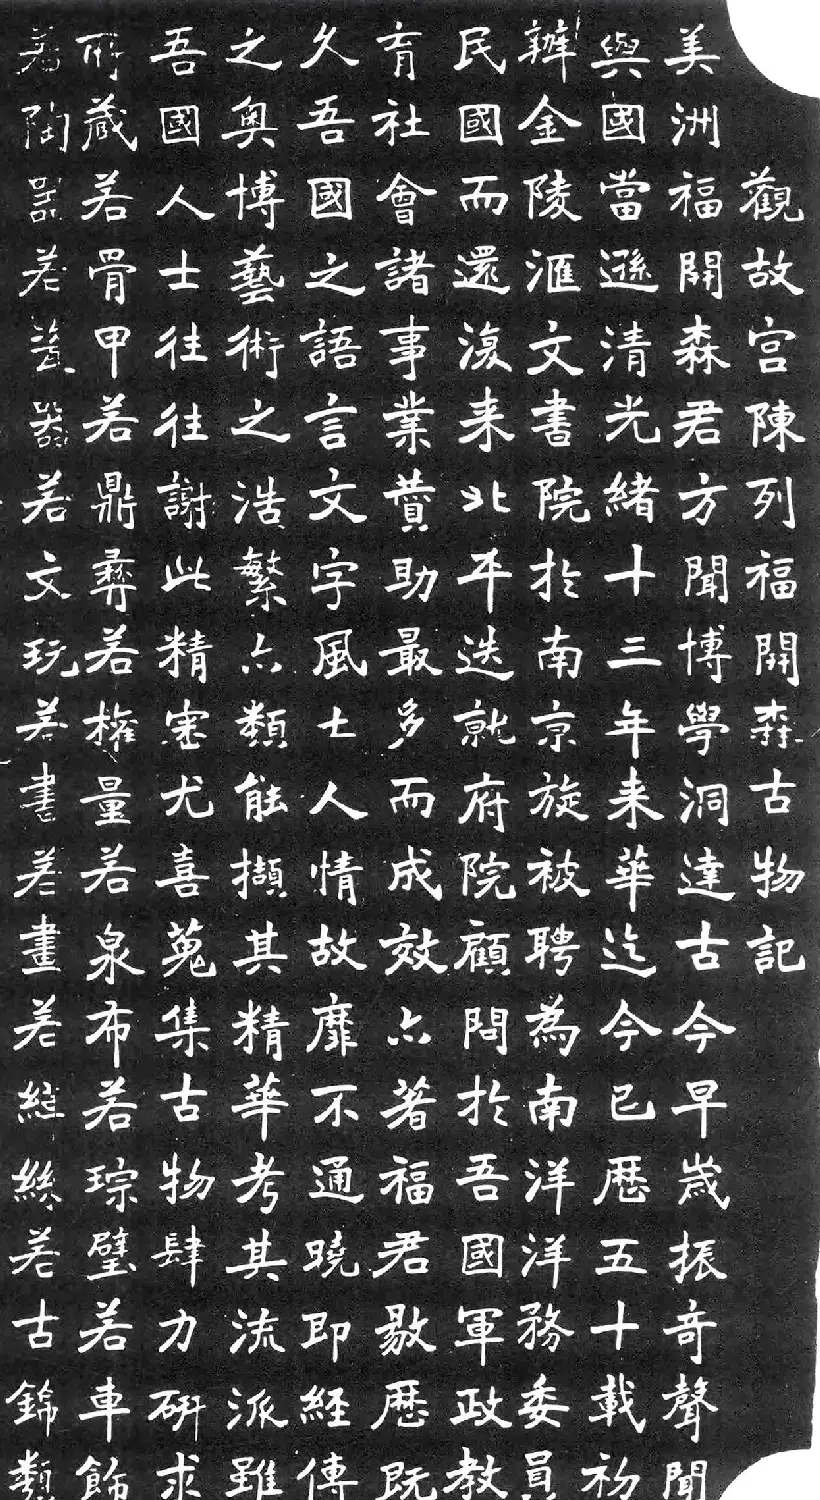 觀故宮陳列福開森古物記
美洲福開森君方聞博學洞達古今早歲振奇聲聞
與國當遜清光緒十三年来華迄今已歷五十載初
辦金陵滙文書院扵南京旋被聘為南洋洋務委員
民國而還復来北平迭就府院顧問扵吾國軍政教
育社會諸事業贊助最多而成效亦著福君敭歷既
久吾國之語言文字風土人情故靡不通曉即經傳
之奧博藝術之浩繁亦類能擷其精華考其流派雖
吾國人士往往謝此精密尤喜蒐集古物肆力研求
所藏若骨甲若鼎彝若權量若泉布若琮璧若車飾
若陶器若瓷器若文玩若書若畫若緙絲若古錦類